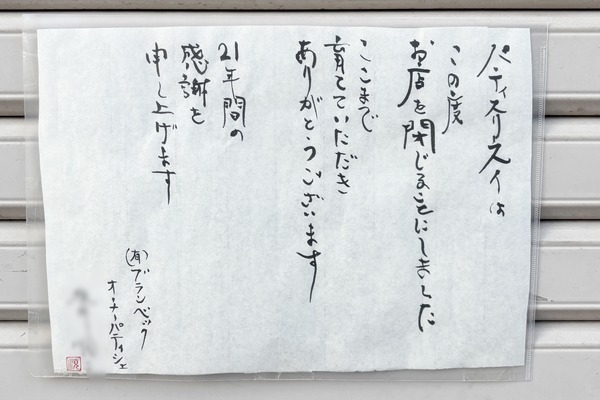 パティスリスイは
この度
お店を閉じることにしました
ここまで
育てていただき
ありがとうございます
21年間の
感謝を
申し上げます
(有)ブランベック
オーナーパティシェ